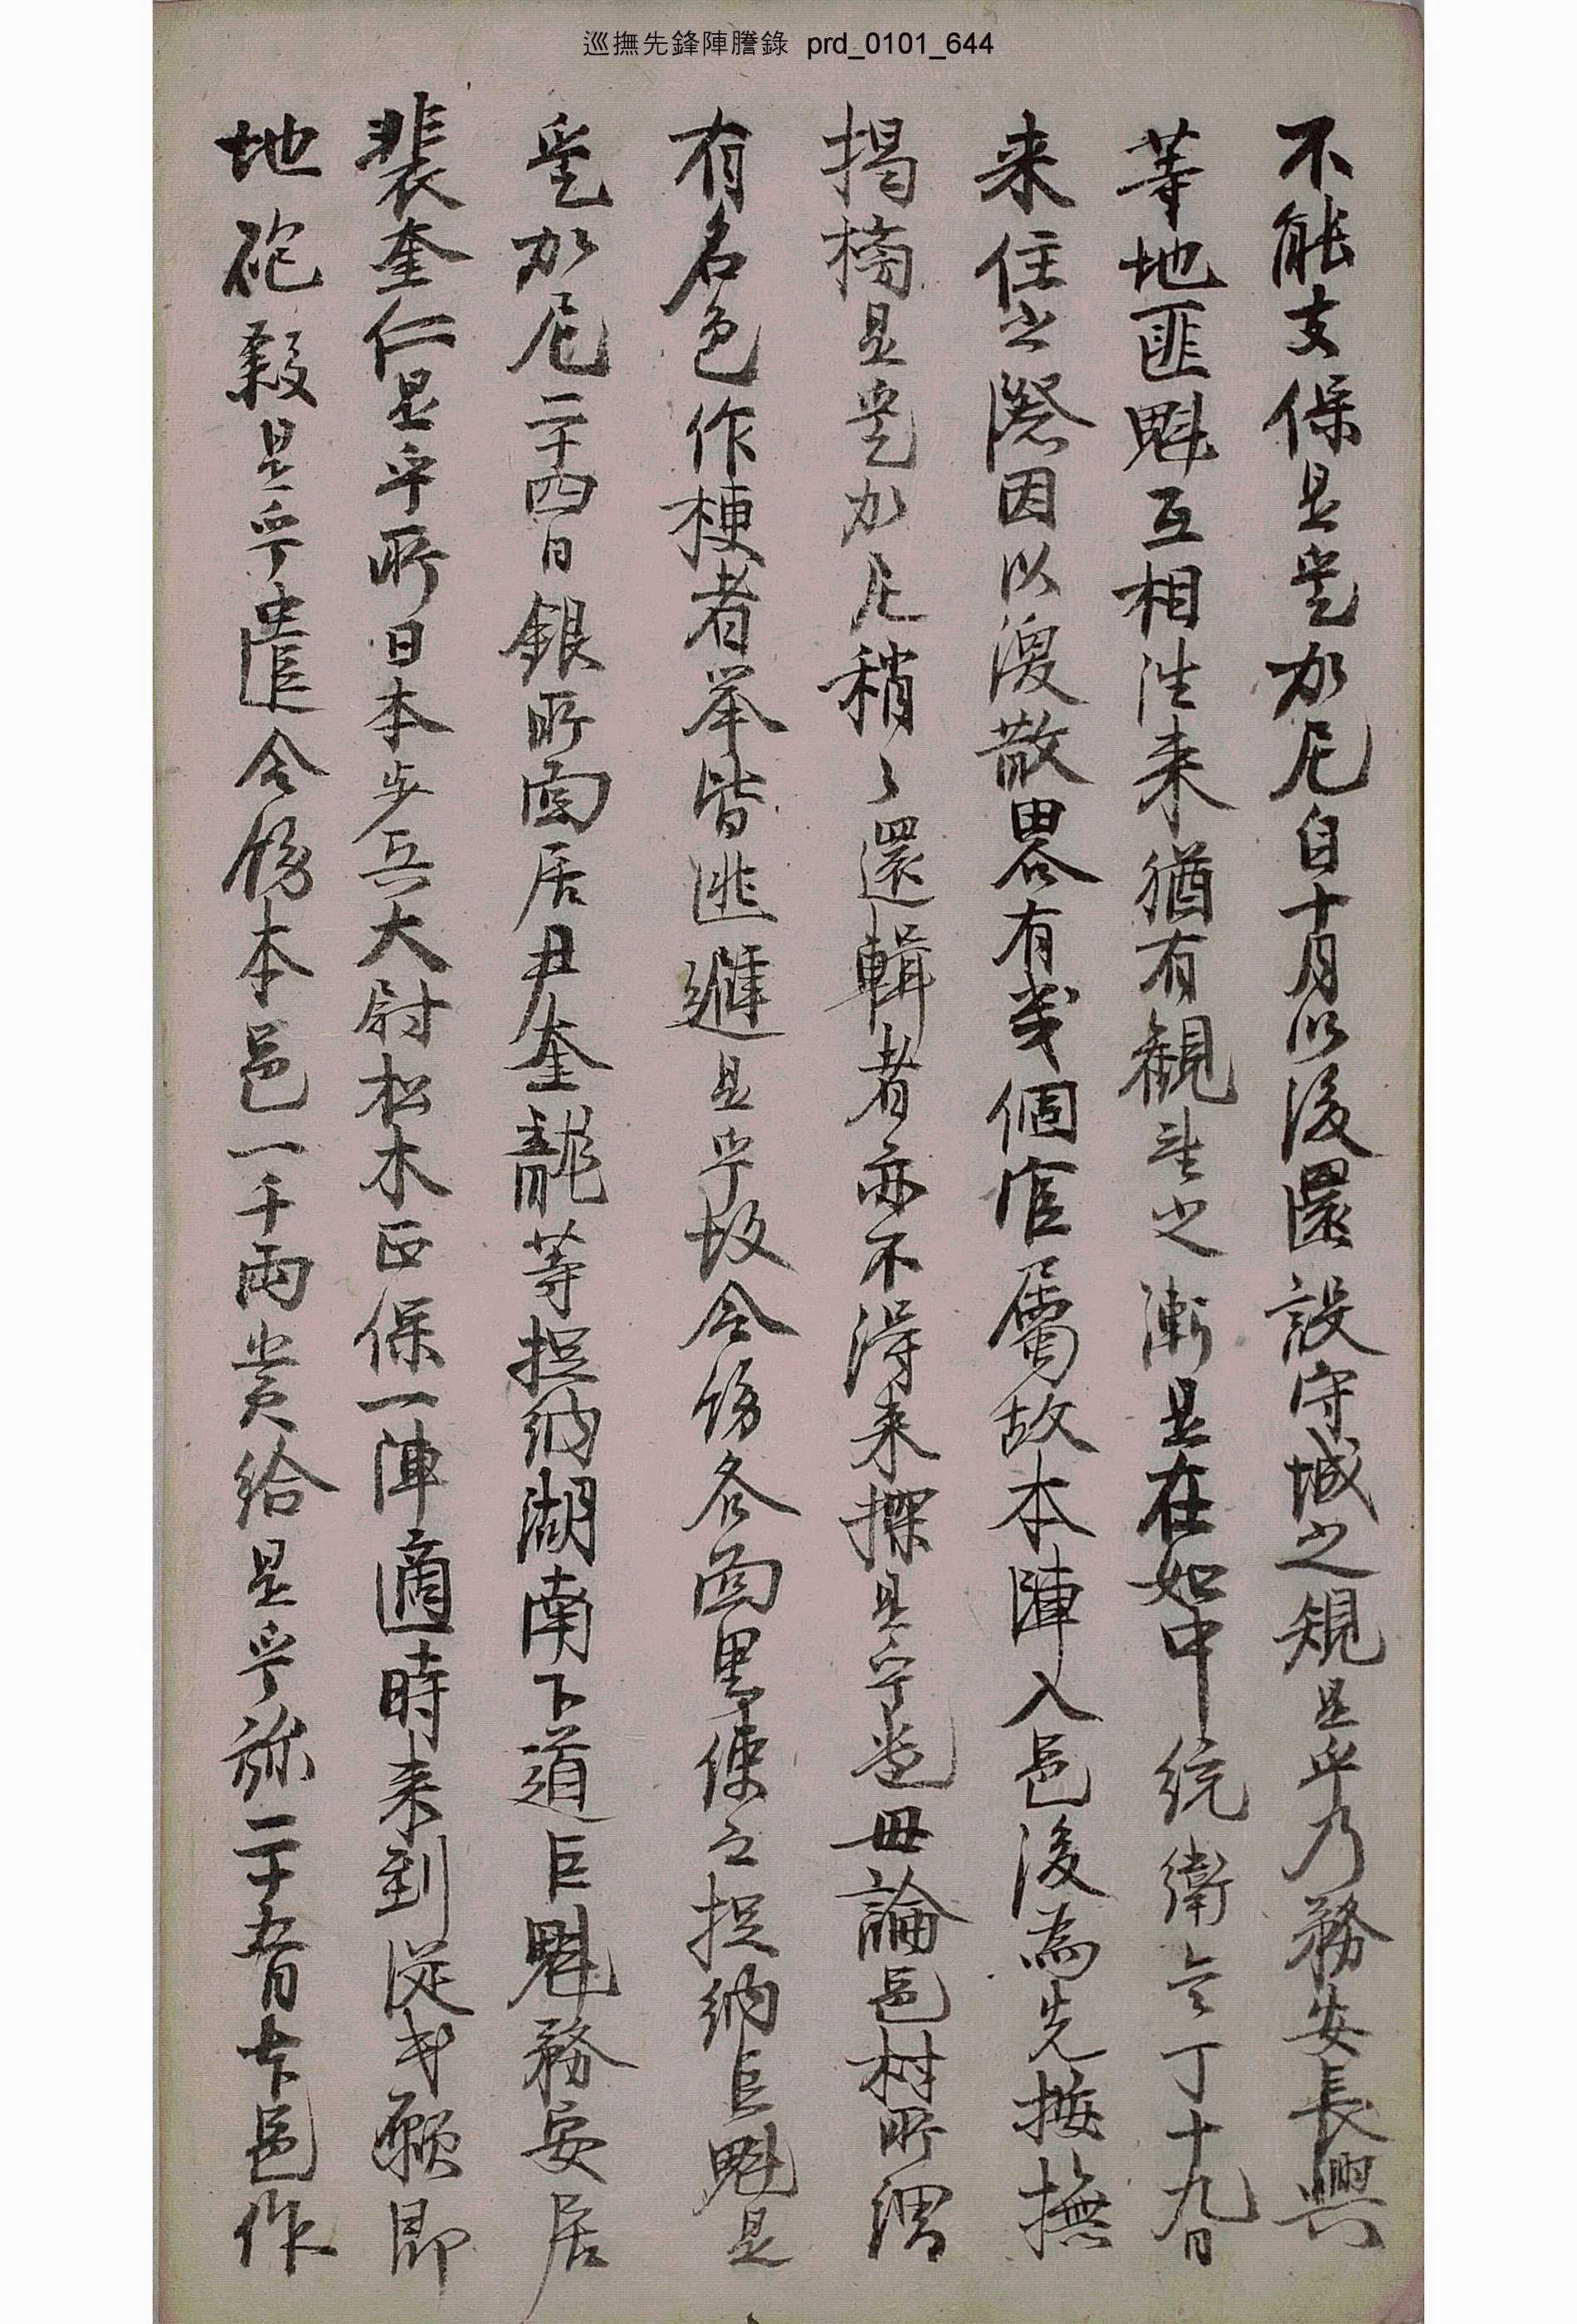 巡撫先鋒陣謄錄 prd_0101_644
不能支保是㢱加尼自十月以後還設守城之規是乎乃務安長興
等地匪魁互相往来猶有觀望之漸是在如中統衛兵丁十九日
来住之際因以溲散畧有幾個官属故本陣入邑後為先接撫
揭榜是㢱加尼稍々還輯者亦不得来探是乎㢱毋論邑村所謂
有名色作梗者举皆逃遁是乎故令飭各面里使之捉納巨魁是
㢱加尼二十四日銀所面居尹奎龍等捉納湖南下道巨魁務安居
裴奎仁是乎所日本步兵大尉松木正保一陣適時来到從其願即
地砲殺是乎遣令飭本邑一千兩賞給是乎旀二十五日本邑作